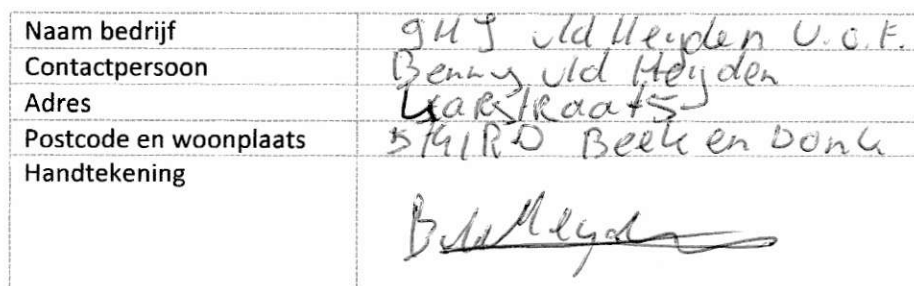 Naam bedrijf GHJ vld Heyden V.O.F.
Contactpersoon Benny vld Heyden
Adres
Postcode en woonplaats 5741RD Beek en Donk
Handtekening B vld Heyden